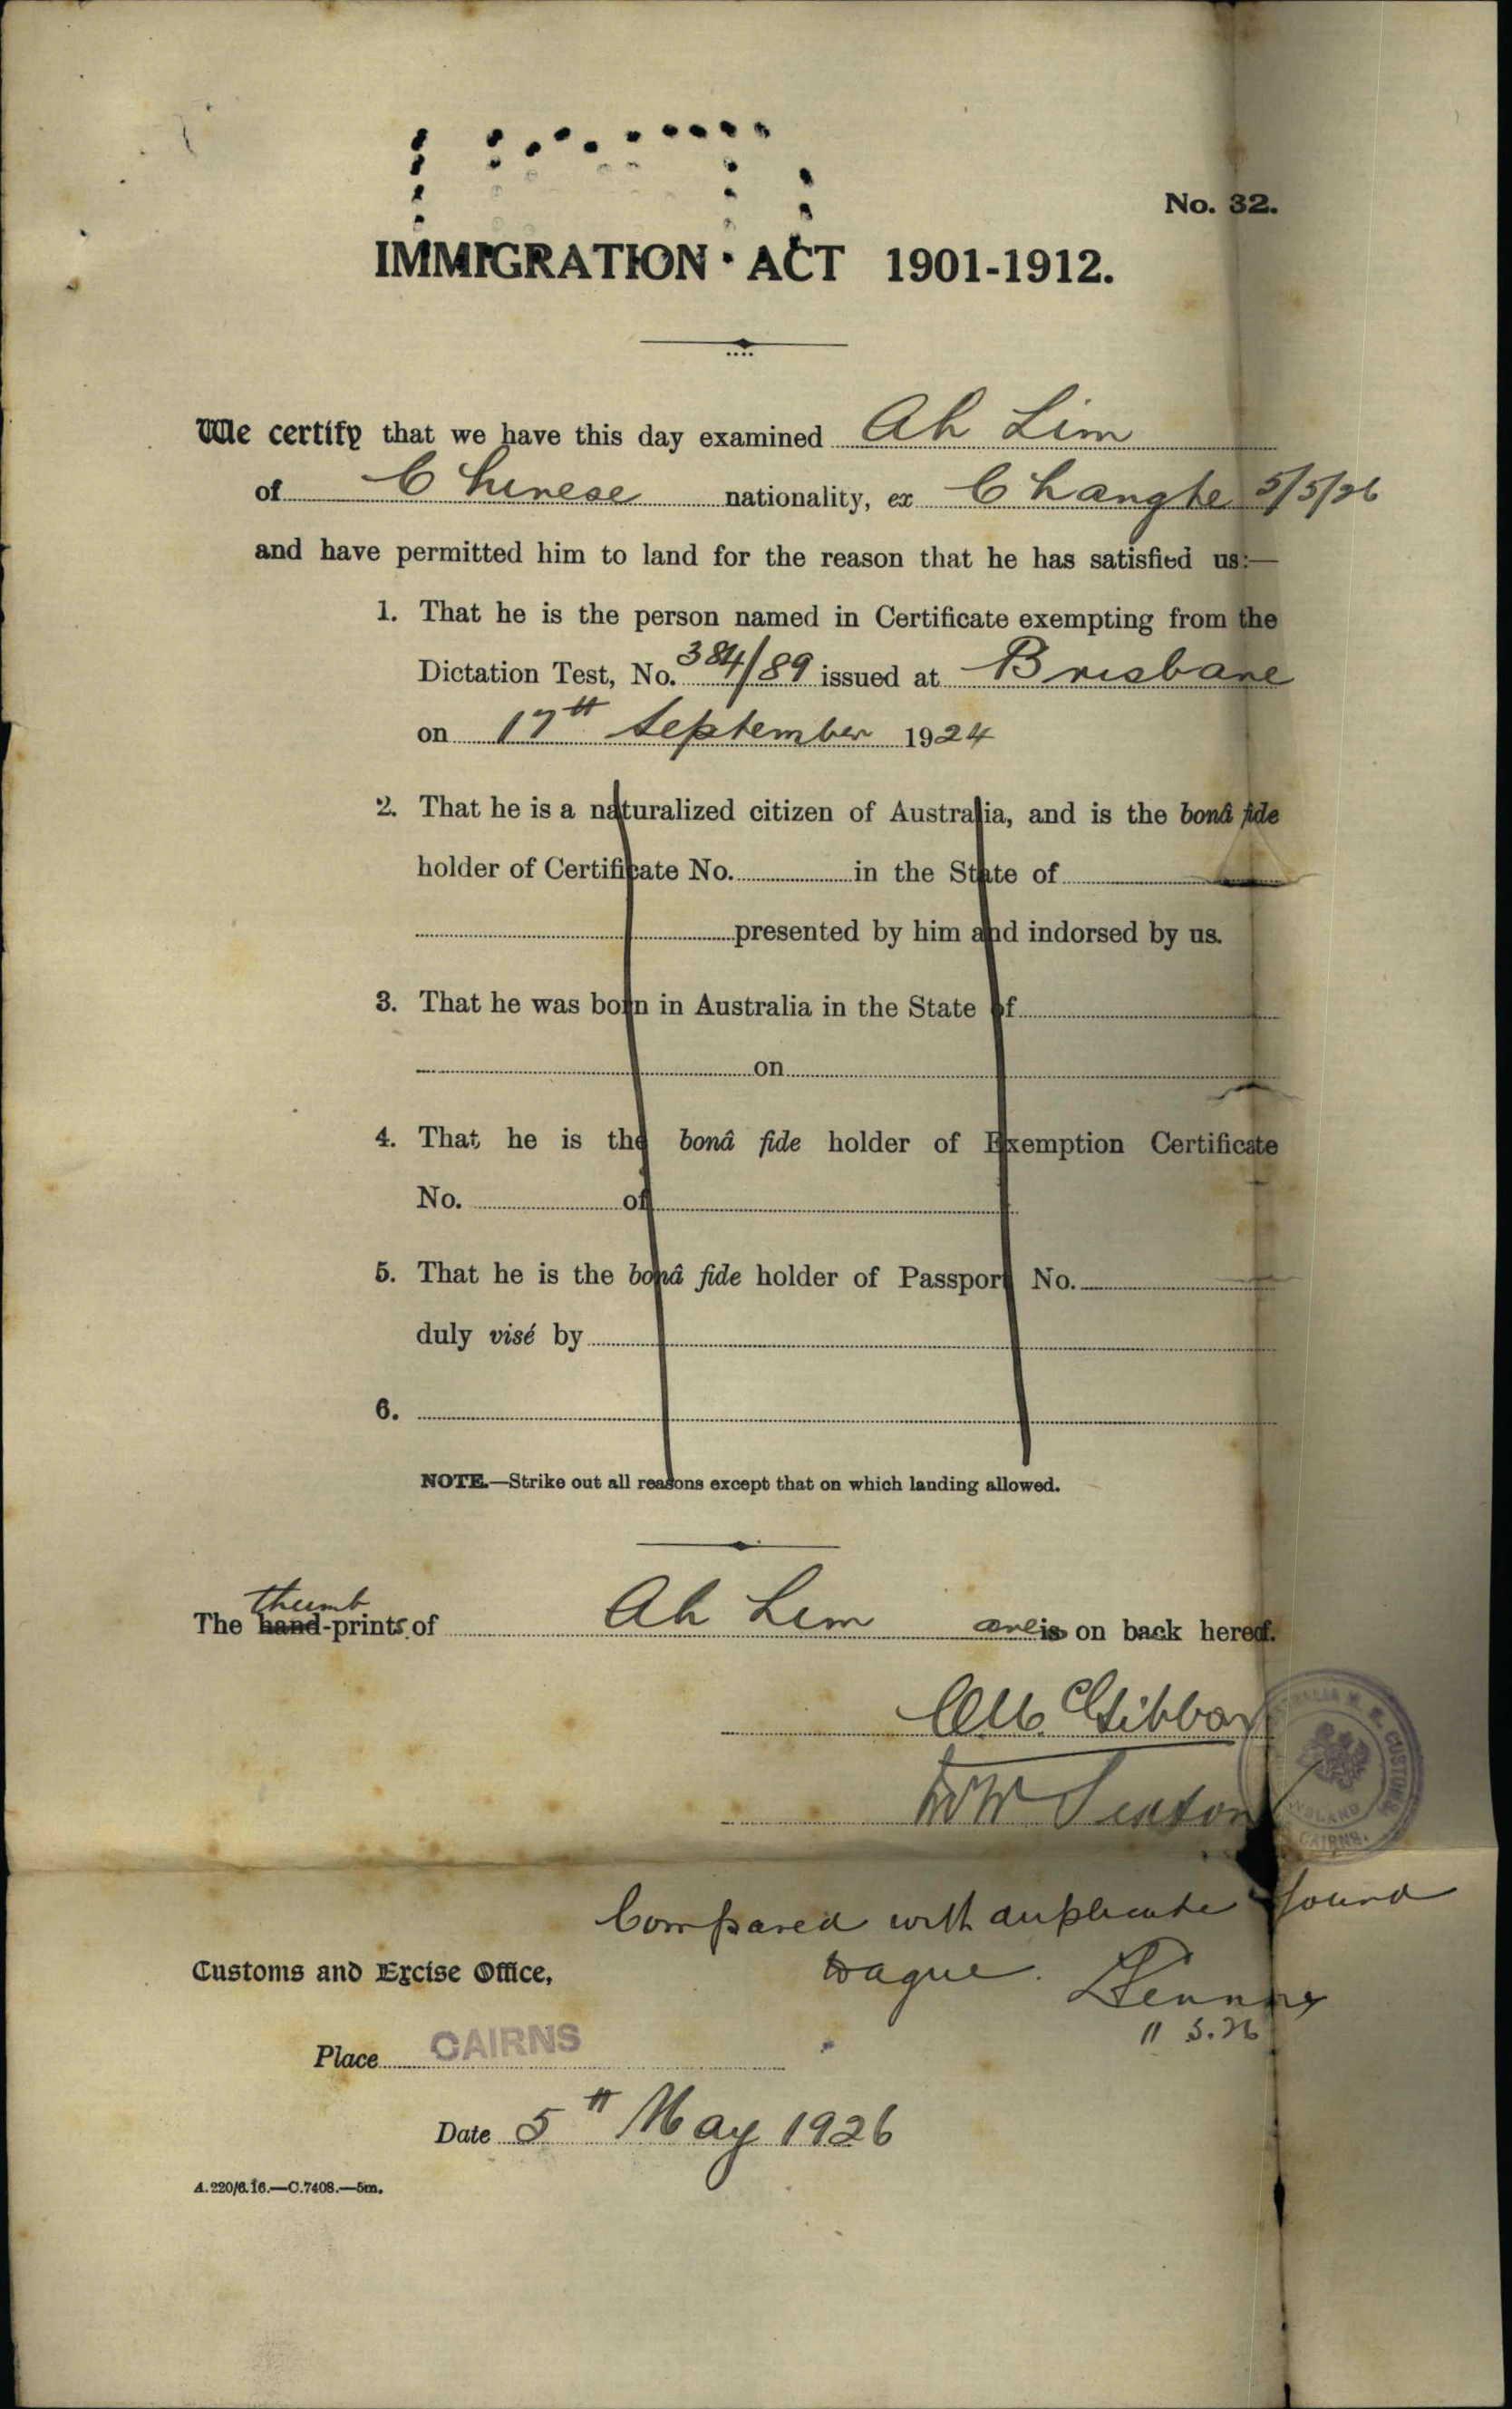 No. 32.
IMMIGRATION ACT 1901-1912.
We certify that we have this day examined Ah Lim
of Chinese nationality, ex Changte 5/5/26
and have permitted him to land for the reason that he has satisfied us:—
1. That he is the person named in Certificate exempting from the
Dictation Test, No. 384/89 issued at Brisbane
on 17th September 1924
2. That he is a naturalized citizen of Australia, and is the bonâ fide
holder of Certificate No. in the State of
presented by him and indorsed by us.
3. That he was born in Australia in the State of
on
4. That he is the bonâ fide holder of Exemption Certificate
No. of
5. That he is the bonâ fide holder of Passport No.
duly visé by
6.
NOTE.—Strike out all reasons except that on which landing allowed.
thumb
The hand-prints of Ah Lim are is on back hereof.
Gibbon
Compared with duplicate found
Customs and Excise Office,
11 5.26
Place CAIRNS
Date 5th May 1926
A.220/6.16.—C.7408.—5m.
CUSTOMS
CAIRNS.